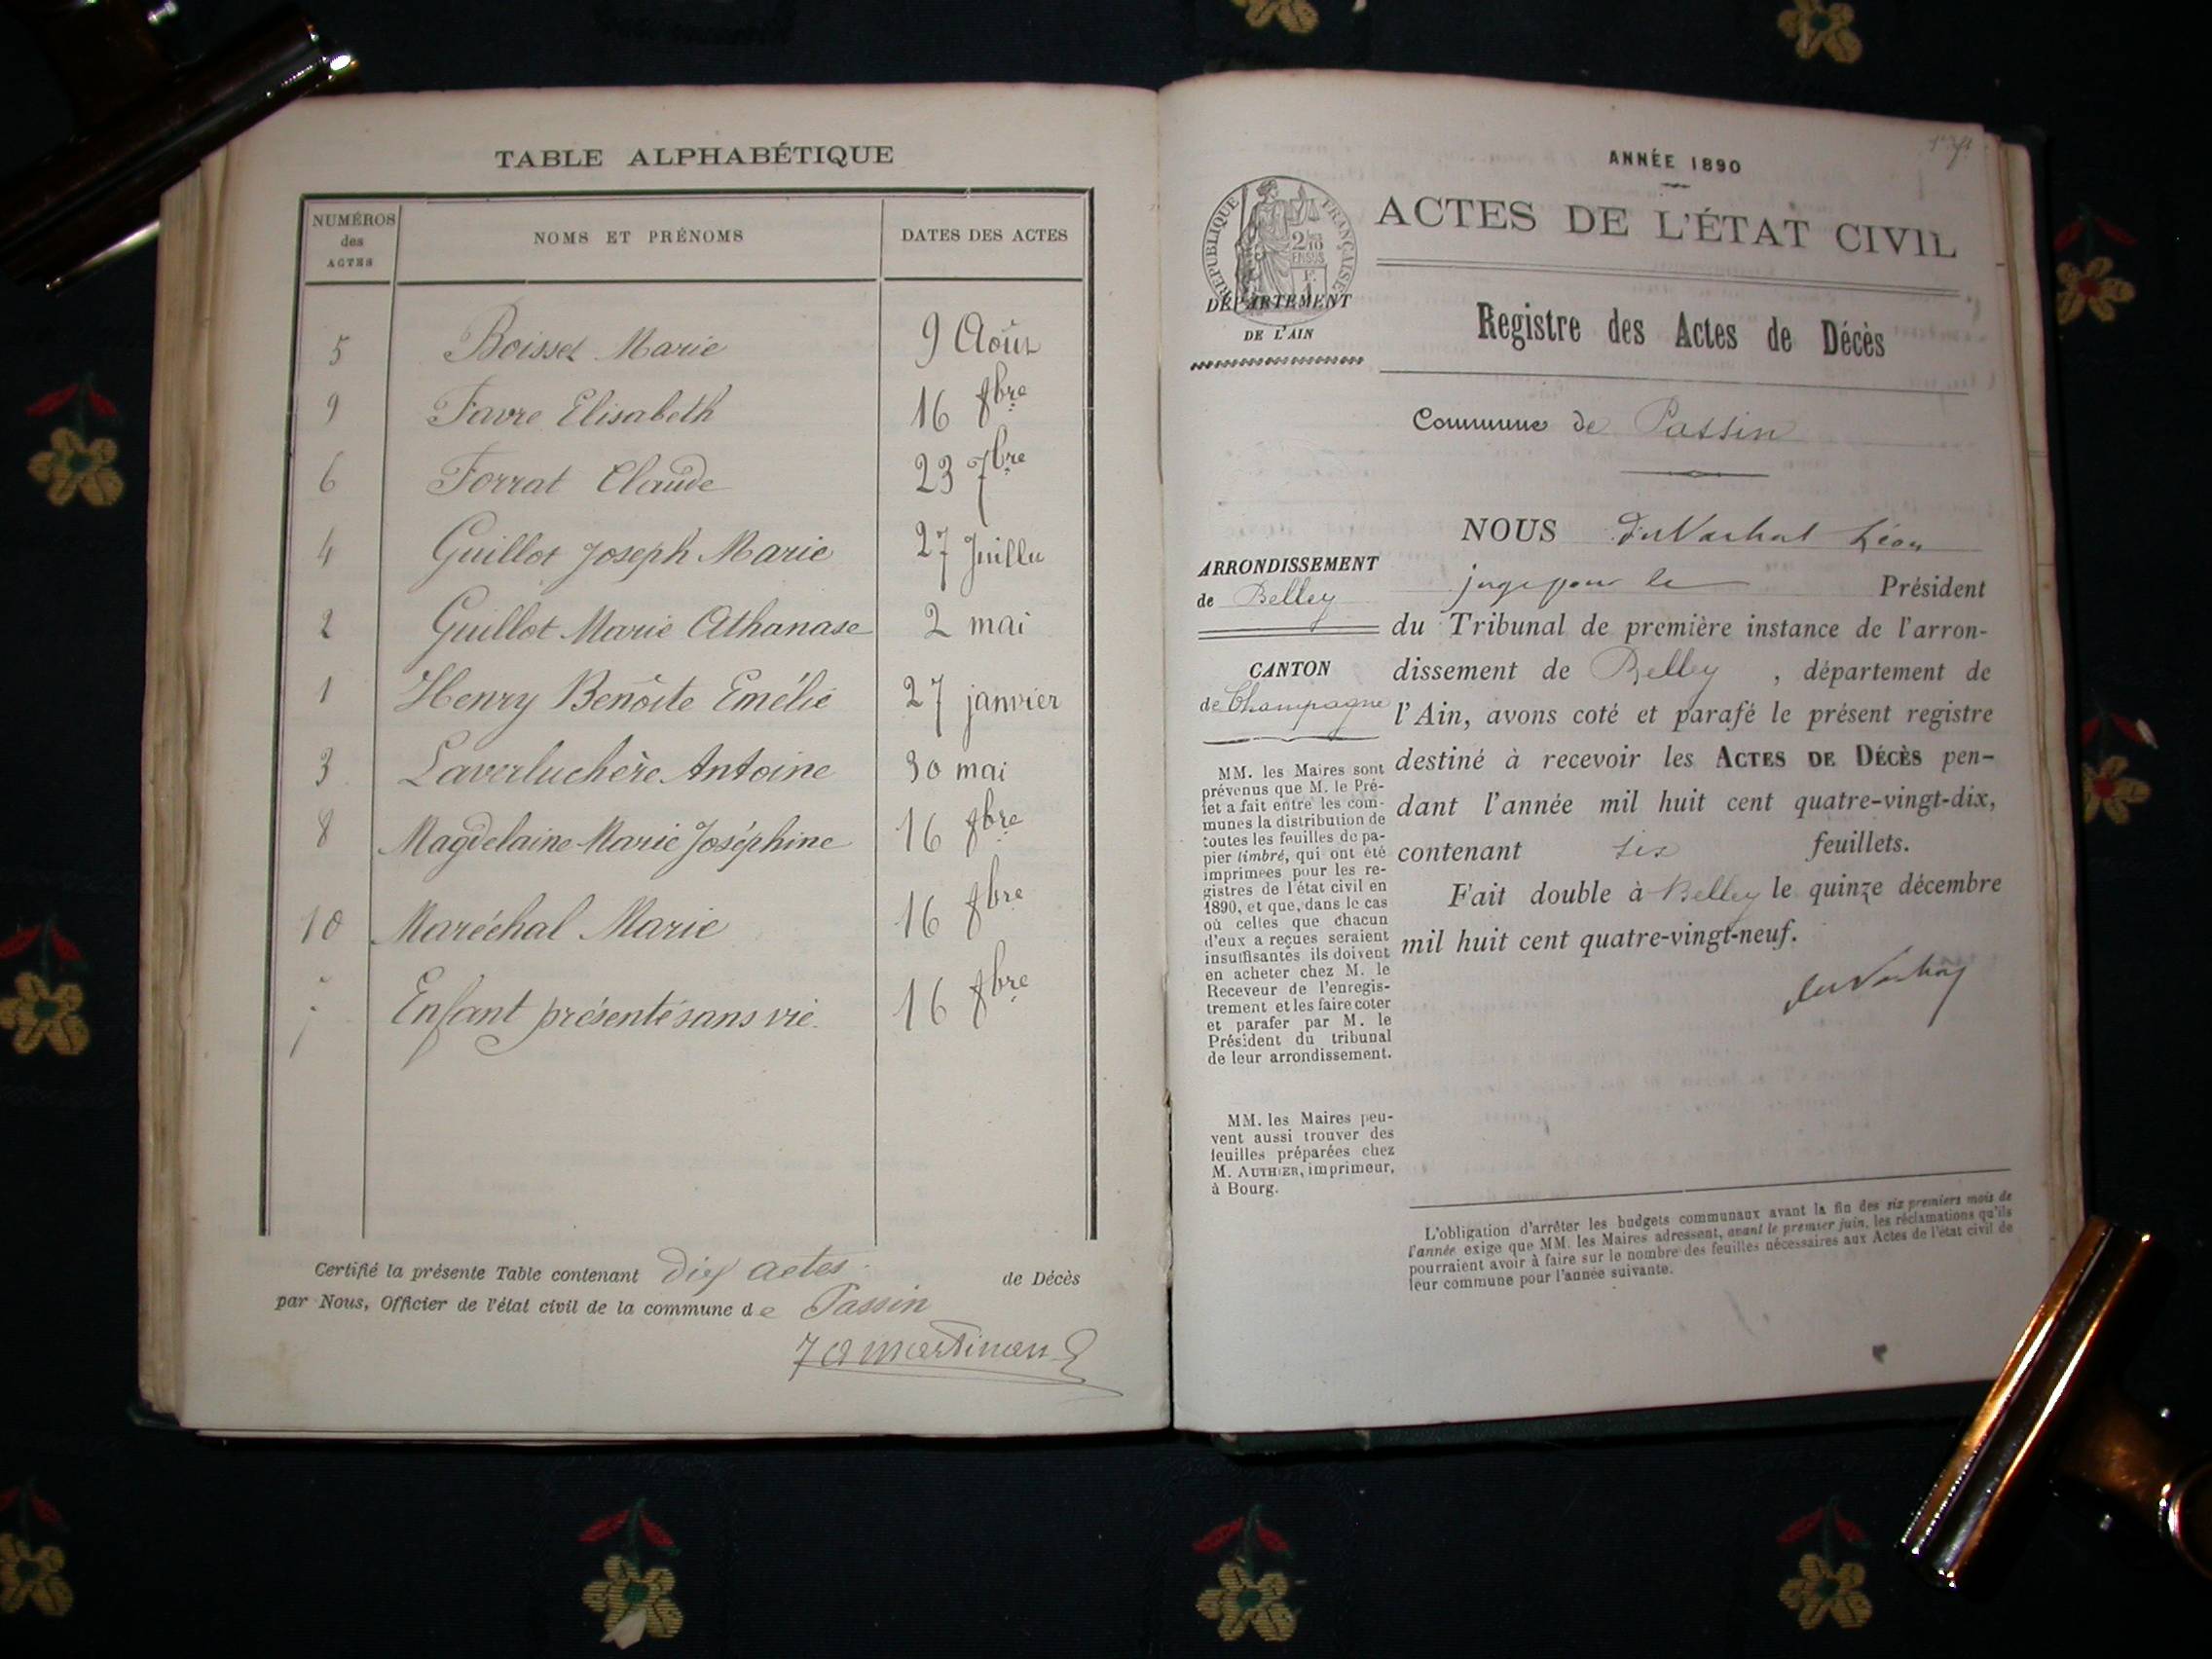 TABLE ALPHABÉTIQUE
NUMÉROS
des
ACTES
NOMS ET PRÉNOMS
DATES DES ACTES
5 Boisset Marie 9 Août
9 Favre Elisabeth 16 8bre
6 Forrat Claude 23 7bre
4 Guillot Joseph Marie 27 Juillet
2 Guillot Marie Athanase 2 mai
1 Henry Benoîte Emélie 27 janvier
3 Laverluchère Antoine 30 mai
8 Magdelaine Marie Joséphine 16 8bre
10 Maréchal Marie 16 8bre
7 Enfant présenté sans vie. 16 8bre
Certifié la présente Table contenant dix actes de Décès
par Nous, Officier de l'état civil de la commune de Passin
ANNÉE 1890
ACTES DE L'ÉTAT CIVIL
RÉPUBLIQUE FRANÇAISE
2/10
EN SUS
DÉPARTEMENT
DE L'AIN
Registre des Actes de Décès
Commune de Passin
ARRONDISSEMENT
de Belley
CANTON
de Champagne
MM. les Maires sont
prévenus que M. le Pré-
fet a fait entre les com-
munes la distribution de
toutes les feuilles de pa-
pier timbré, qui ont été
imprimées pour les re-
gistres de l'état civil en
1890, et que, dans le cas
où celles que chacun
d'eux a reçues seraient
insuffisantes ils doivent
en acheter chez M. le
Receveur de l'enregis-
trement et les faire coter
et parafer par M. le
Président du tribunal
de leur arrondissement.
MM. les Maires peu-
vent aussi trouver des
feuilles préparées chez
M. AUTHIER, imprimeur,
à Bourg.
NOUS Léon
juge pour le Président
du Tribunal de première instance de l'arron-
dissement de Belley , département de
l'Ain, avons coté et parafé le présent registre
destiné à recevoir les ACTES DE DÉCÈS pen-
dant l'année mil huit cent quatre-vingt-dix,
contenant six feuillets.
Fait double à Belley le quinze décembre
mil huit cent quatre-vingt-neuf.
L'obligation d'arrêter les budgets communaux avant la fin des six premiers mois de
l'année exige que MM. les Maires adressent, avant le premier juin, les réclamations qu'ils
pourraient avoir à faire sur le nombre des feuilles nécessaires aux Actes de l'état civil de
leur commune pour l'année suivante.